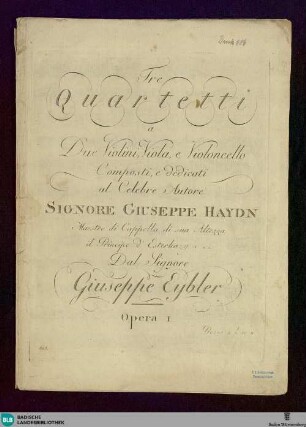 Tre
Quartetti
a
Due Violini, Viola, e Violoncello
Composti, e dedicati
al Celebre Autore
SIGNORE GIUSEPPE HAYDN
Maestro di Cappella di sua Altezza
il Principe d'
Dal Signore
Giuseppe Eybler
Opera 1
BLB BADISCHE
LANDESBIBLIOTHEK
Baden-Württemberg